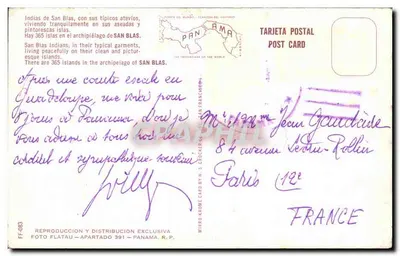 Indias de San Blas, con sus típicos atavíos,
viviendo tranquilamente en sus aseados y
pintorescas islas.
Hay 365 islas en el archipiélago de SAN BLAS.
San Blas Indians, in their typical garments,
living peacefully on their clean and pictur-
esque islands.
There are 365 islands in the archipelago of SAN BLAS.
PANAMA
TARJETA POSTAL
POST CARD
Après une courte escale en
Guadeloupe, me voici pour
jours à Panama, d'où je
vous adresse à tous
cordial et sympathique souvenir
Mr et Mme Jean
84 avenue Ledru-Rollin
Paris 12e
FRANCE
FF-085
REPRODUCCION Y DISTRIBUCION EXCLUSIVA
FOTO FLATAU - APARTADO 391 - PANAMA, R. P.